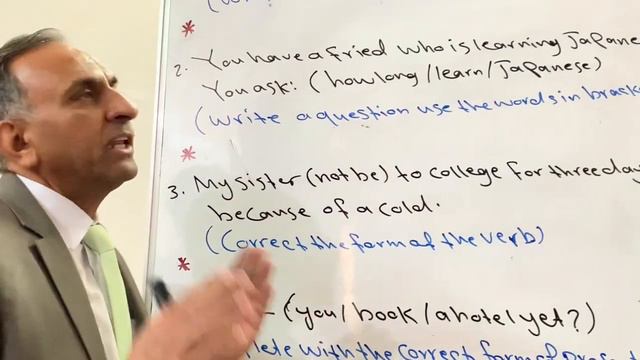 *
2. You have a fried who is learning Japane
You ask: (how long/learn/Japanese)
(Write a question use the words in brack
*
3. My sister (not be) to college for three day
because of a cold.
(Correct the form of the verb)
*
- (you/book/a hotel yet?)
lete with the correct form of pres